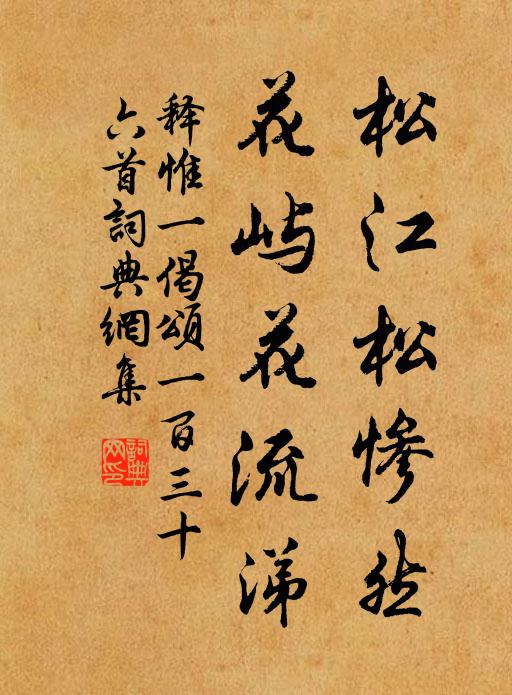 松江松惨然
花屿花流涕
释惟一偈颂一百三十
六首詞典網集
詞典网印